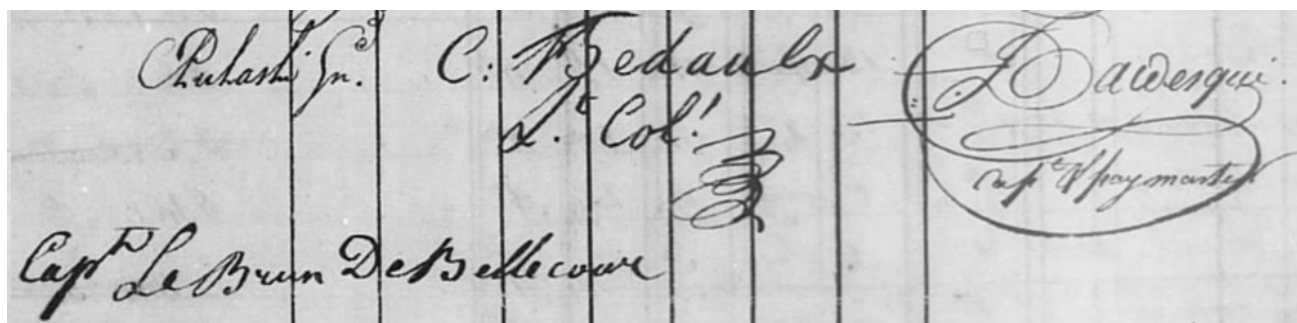 Pulaski Gn.
C: Bedaulx
Lt. Col!
J. Baldesqui.
Capt & paymaster
Captn Le Brun De Bellecour